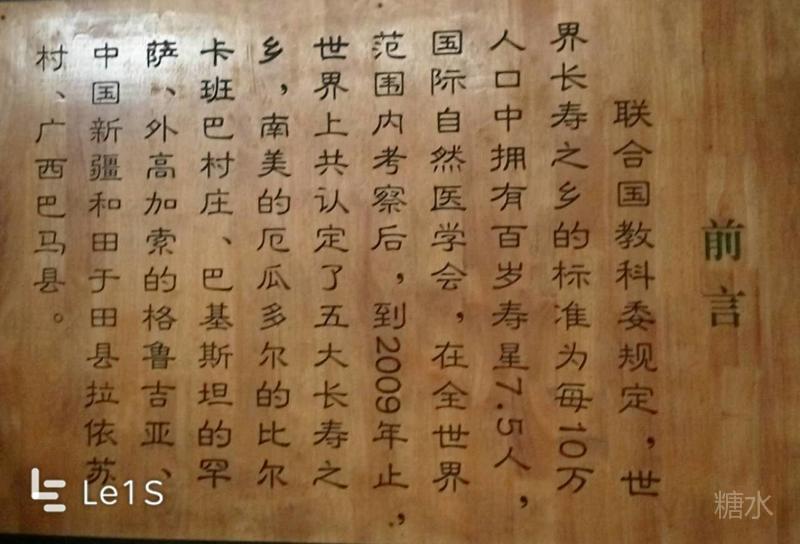 前言
联合国教科委规定，世
界长寿之乡的标准为每10万
人口中拥有百岁寿星7.5人，
国际自然医学会，在全世界
范围内考察后，到2009年止，
世界上共认定了五大长寿之
乡，南美的厄瓜多尔的比尔
卡班巴村庄、巴基斯坦的罕
萨、外高加索的格鲁吉亚、
中国新疆和田于田县拉依苏
村、广西巴马县。
Le1S
糖水